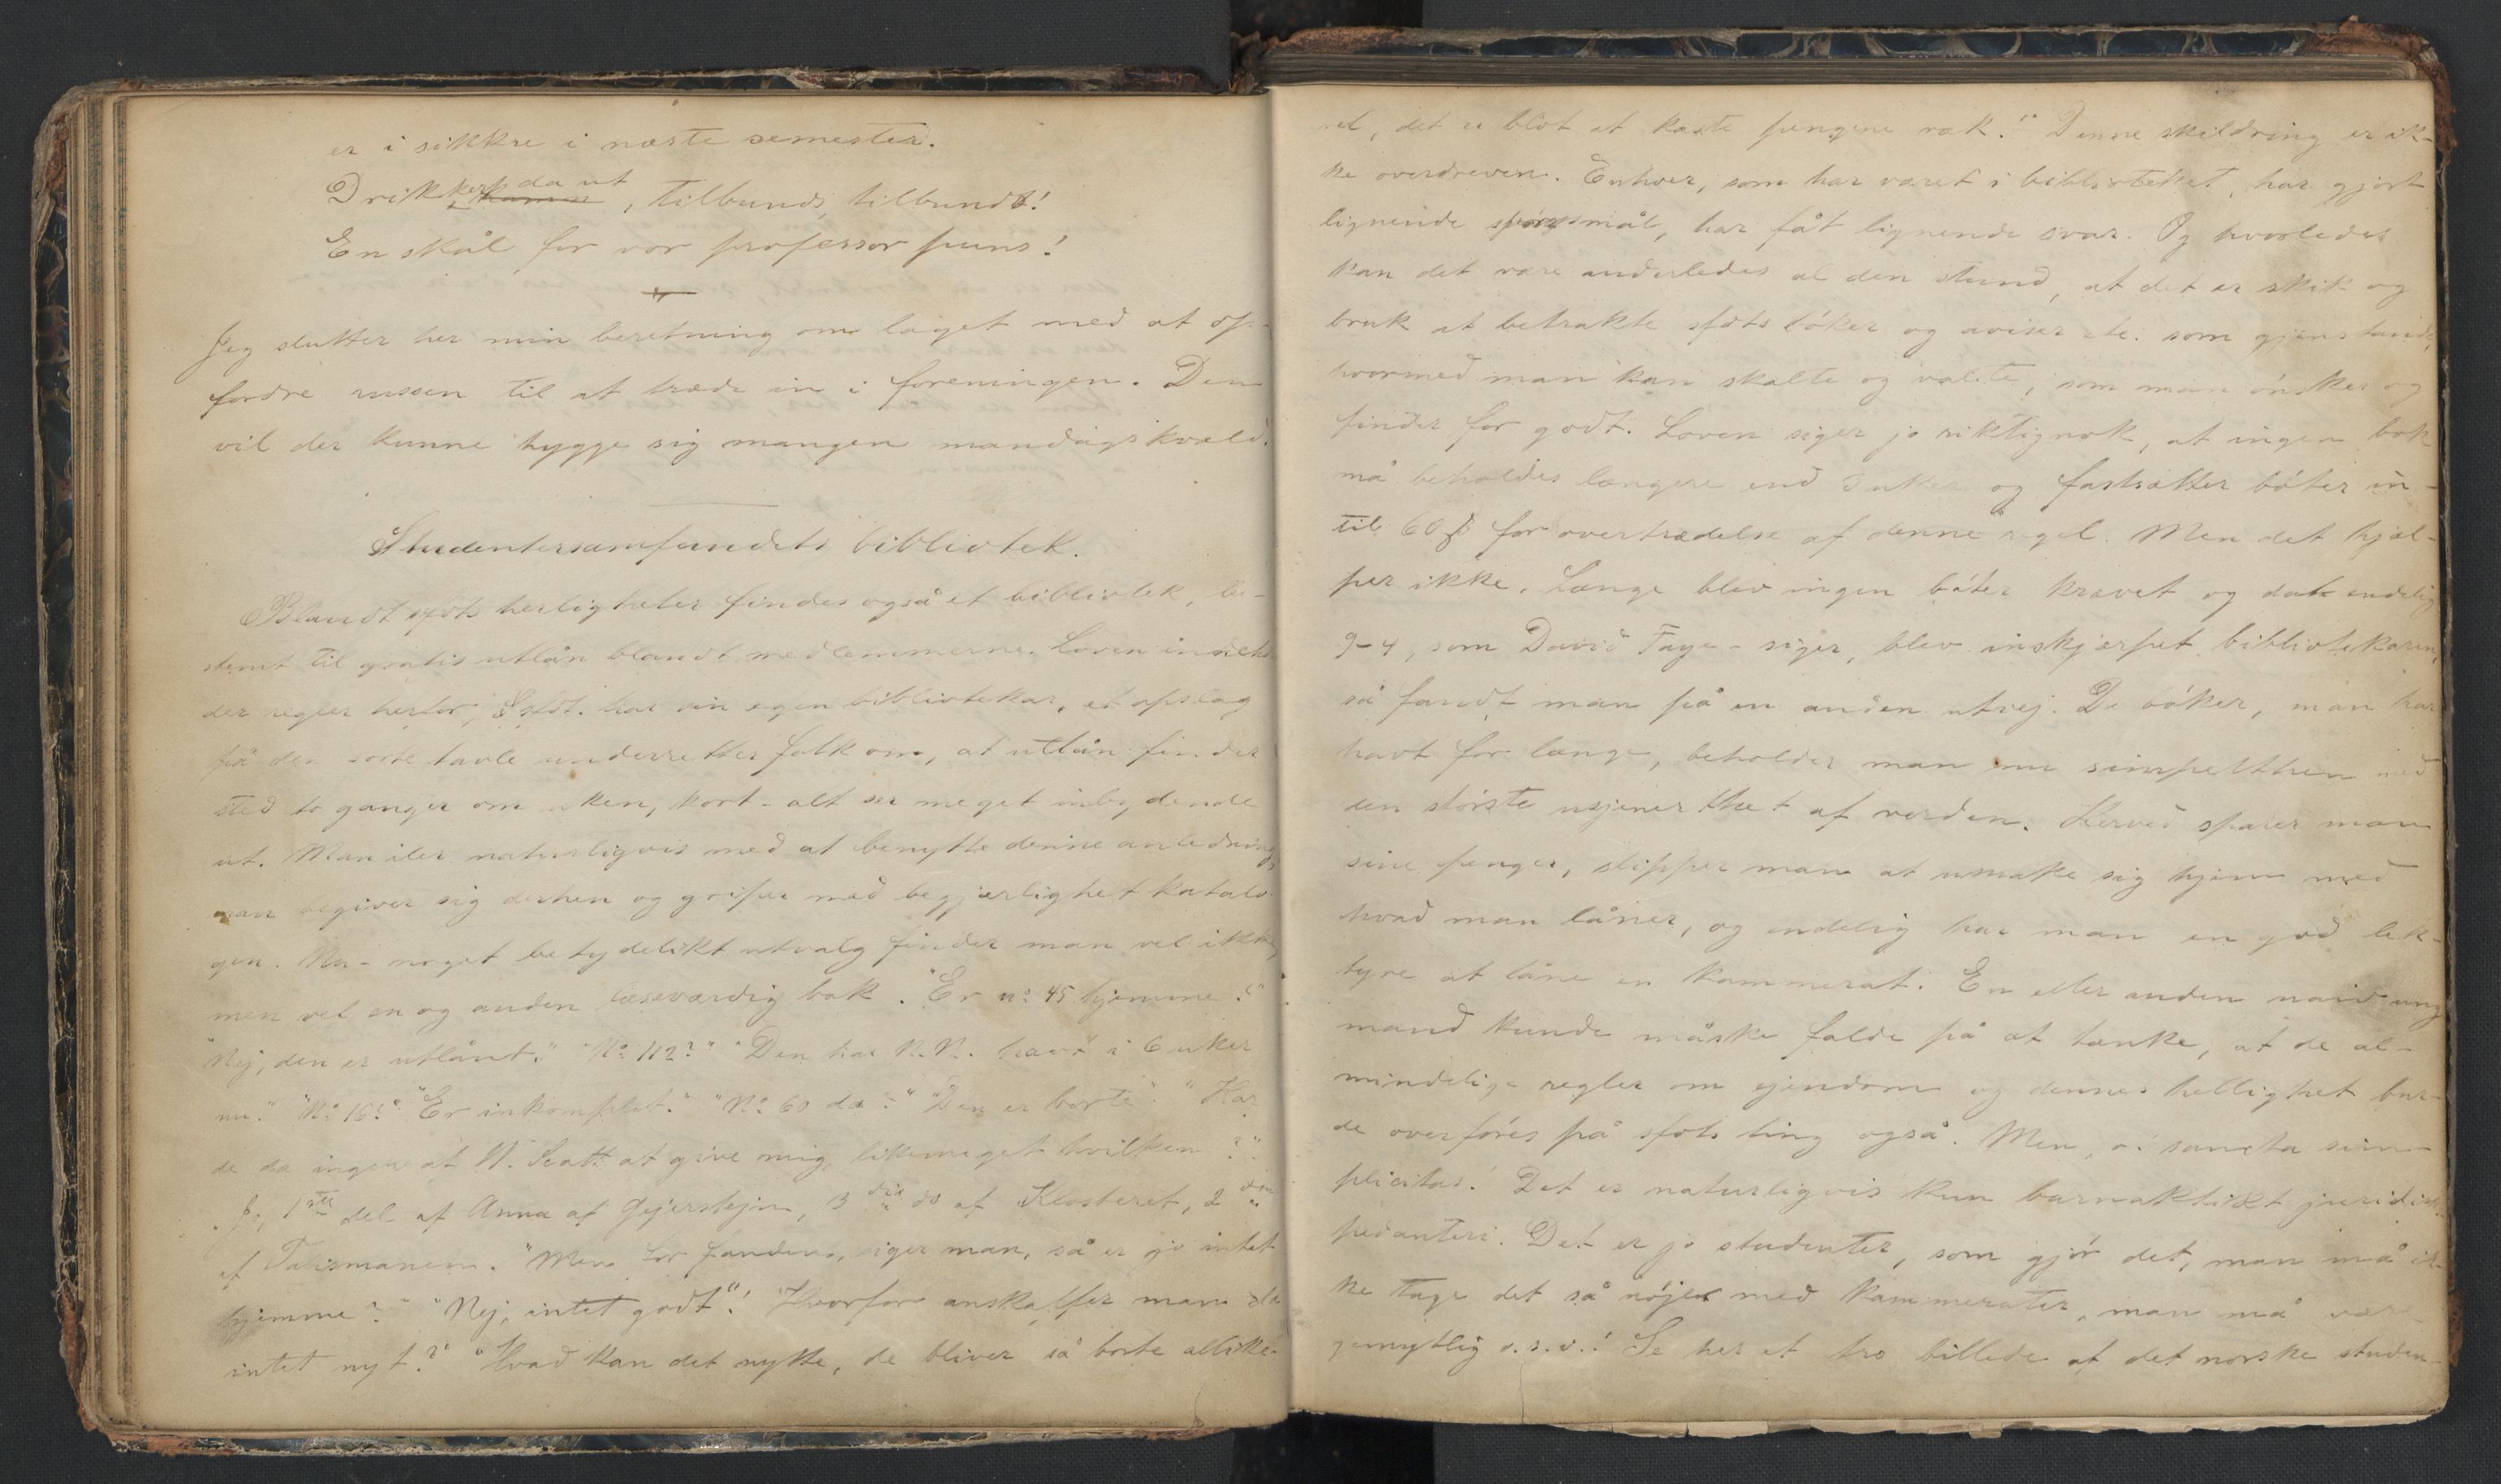 er i sikkre i næste semester.
Drik kert da ut, tilbunds, tilbunds!
En skål for vor professor puns!
Jeg slutter her min beretning om laget med at op-
fordre russen til at træde in i foreningen. Den
vil der kunne hygge sig mangen mandagskvæld.
Studentersamfundets bibliotek.
Blandt sfdts herligheter findes også et bibliotek, be-
stemt til gratis utlån blandt medlemmerne. Loven inneh
der regler herfor, Sfdt. har sin egen bibliotekar, et opslag
på den sorte tavle underretter folk om, at utlån finder
sted to ganger om uken, kort - alt ser meget inbydende
ut. Man iler naturligvis med at benytte denne anledning,
man begiver sig derhen og griper med begjærlighet katalo-
gen. Nu - noget betydelikt utvalg finder man vel ikke,
men vel en og anden læseværdig bok. "Er no 45 hjemme?"
"Nej, den er utlånt." "No 112?" "Den har N.N. havt i 6 uker
nu." "No 16?" "Er inkomplet." "No 60 da?" "Den er borte". "Har
de da ingen af W. Scott at give mig, likemeget hvilken?"
"Jo, 1ste del af Anna af Gejerstejn, 3die do af Klosteret, 2den
af Talismanen. "Men for fanden, siger man, så er jo intet
hjemme?" "Nej, intet godt"! "Hvorfor anskaffer man da
intet nyt?" "Hvad kan det nytte, de bliver så borte allike-
vel, det er blot at kaste pengene væk!" Denne skildring er ik-
ke overdreven. Enhver, som har været i biblioteket, har gjort
lignende spørgsmål, har fåt lignende svar. Og hvorledes
kan det være anderledes al den stund, at det er skik og
bruk at betrakte sfdts bøker og aviser etc. som gjenstande,
hvormed man kan skalte og valte, som man ønsker og
finder for godt. Loven siger jo riktignok, at ingen bok
må beholdes længere end 3 uker og fastsætter bøter in-
til 60 ß for overtrædelse af denne regel. Men det hjæl-
per ikke. Længe blev ingen bøter krævet og da endelig
9-4, som David Faye - siger, blev inskjærpet bibliotekaren,
så fandt man på en anden utvej. De bøker, man har
havt for længe, beholder man nu simpelthen med
den største usjenerthet af verden. Herved sparer man
sine penger, slipper man at umake sig hjem med
hvad man låner, og endelig har man en god lek-
tyre at låne en kammerat. En eller anden naiv ung
mand kunde måske falde på at tænke, at de al-
mindelige regler om ejendom og dennes hellighet bur-
de overføres på sfdts ting også. Men, o! sancta sim-
plicitas! Det er naturligvis kun barnaktikt juridisk
pedanteri. Det er jo studenter, som gjør det, man må ik-
ke tage det så nøje med kammerater, man må være
gemytlig o.s.v.! Se her et tro billede af det norske studen-